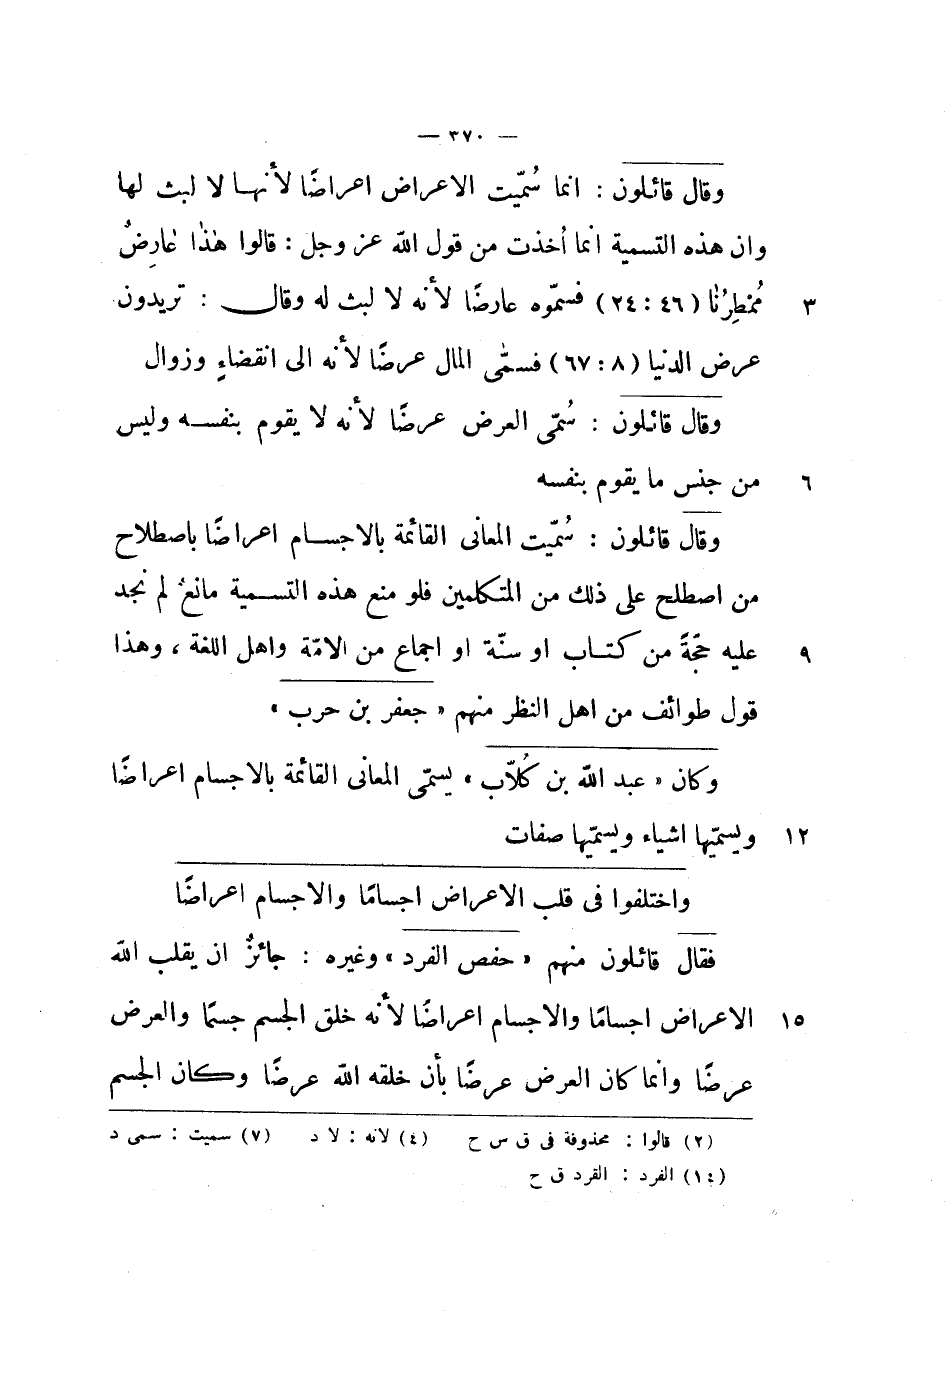 — ٣٧٠ —
وقال قائلون : انما سُمّيت الاعراض اعراضًا لأنها لا لبث لها
وان هذه التسمية انما أُخذت من قول اللّه عز وجل : قالوا هٰذا عٰارِضٌ
٣ مُمْطِرُنٰا (٤٦ : ٢٤) فسمّوه عارضًا لأنه لا لبث له وقال : تريدون
عرض الدنيا (٨ : ٦٧) فسمّى المال عرضًا لأنه الى انقضاءٍ وزوال
وقال قائلون : سُمّى العرض عرضًا لأنه لا يقوم بنفسه وليس
٦ من جنس ما يقوم بنفسه
وقال قائلون : سُمّيت المعانى القائمة بالاجسام اعراضًا باصطلاح
من اصطلح على ذلك من المتكلمين فلو منع هذه التسمية مانعٌ لم نجد
٩ عليه حجّةً من كتاب او سنّة او اجماع من الامّة واهل اللغة ، وهذا
قول طوائف من اهل النظر منهم « جعفر بن حرب »
وكان « عبد اللّه بن كُلاّب » يسمّى المعانى القائمة بالاجسام اعراضًا
١٢ ويسمّيها اشياء ويسمّيها صفات
واختلفوا فى قلب الاعراض اجسامًا والاجسام اعراضًا
فقال قائلون منهم « حفص الفرد » وغيره : جائزٌ ان يقلب اللّه
١٥ الاعراض اجسامًا والاجسام اعراضًا لأنه خلق الجسم جسمًا والعرض
عرضًا وانما كان العرض عرضًا بأن خلقه اللّه عرضًا وكان الجسم
(٢) قالوا : محذوفة فى ق س ح (٤) لانه : لا د (٧) سميت : سمى د
(١٤) الفرد : القرد ق ح